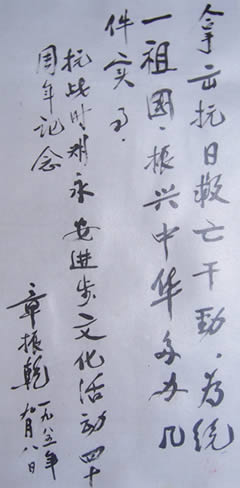 拿出抗日救亡干劲、为统
一祖國、振兴中华多办几
件实事.
抗战时期永安进步文化活动四十
周年记念
章振乾
一九八五年
九月八日